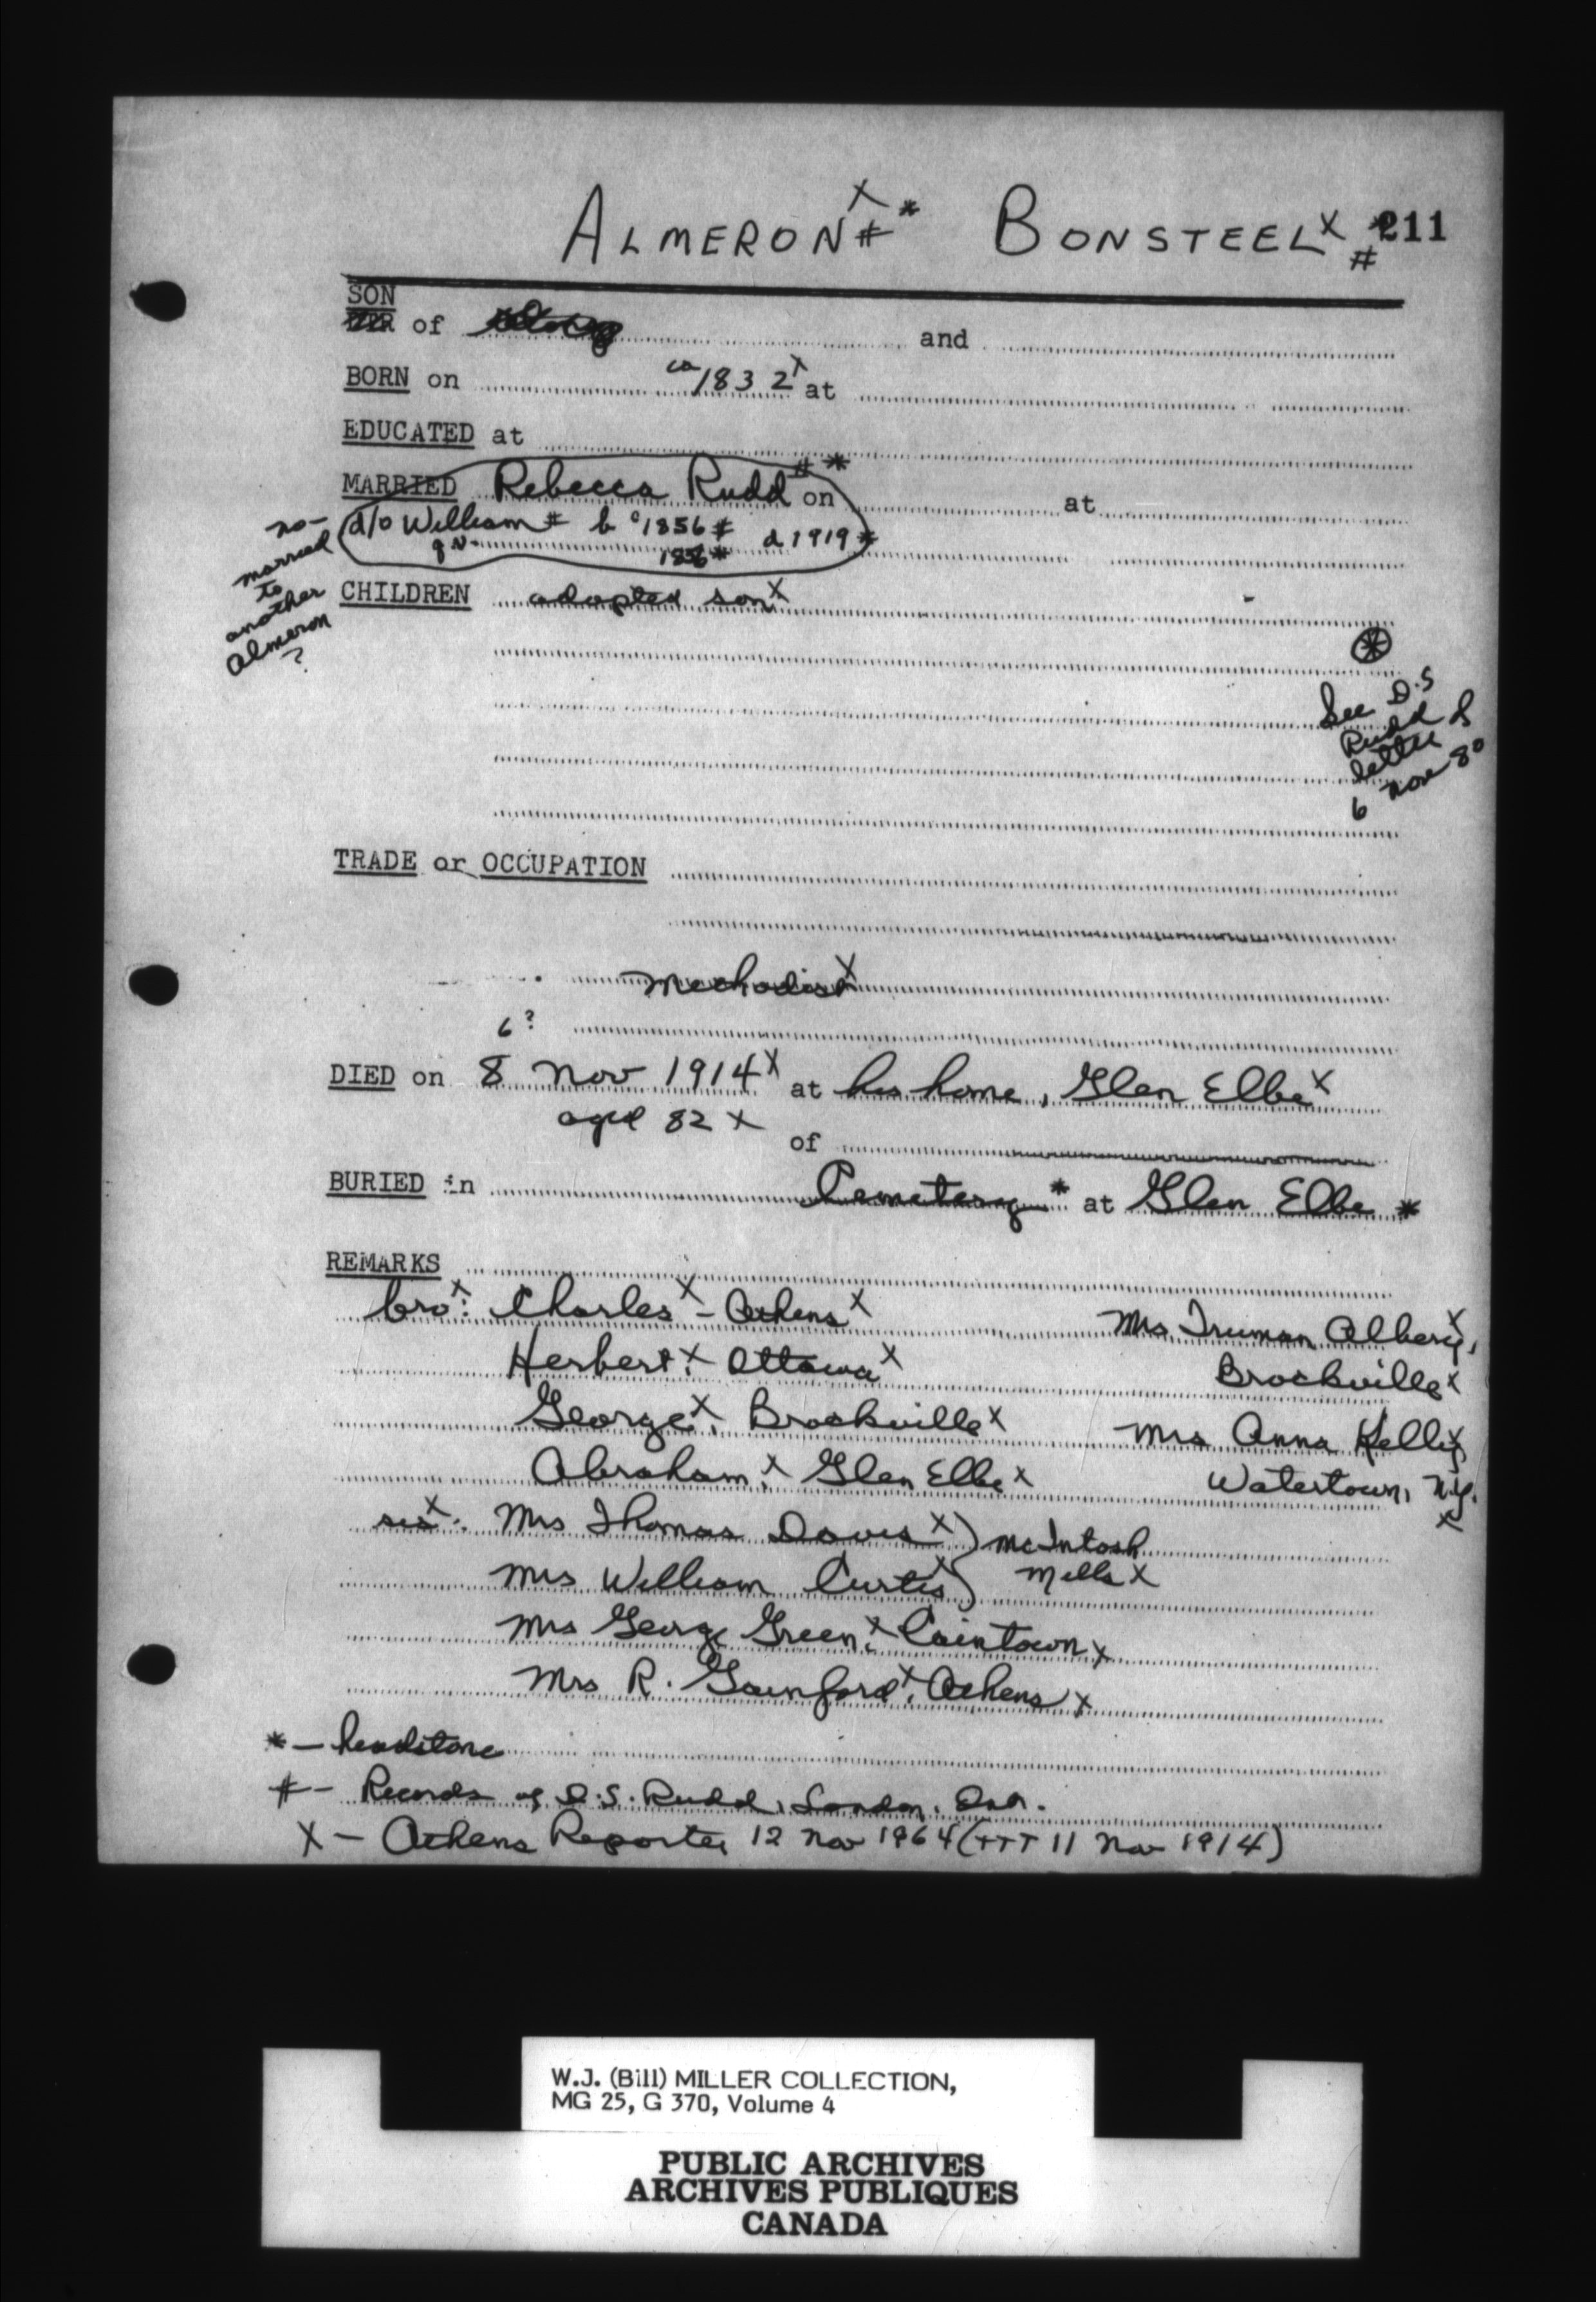 ALMERON x # * BONSTEEL x # 211
SON
of and
BORN on ca 1832 x at
EDUCATED at
MARRIED Rebecca Rudd # * on at
d/o William # b c 1856 # d 1919 *
q.v. 1856 *
no -
married
to
another
Almeron
?
CHILDREN adopted son x
*
See D.S
Rudd
letter
6 Nov 80
TRADE or OCCUPATION
Methodist x
6?
DIED on 8 Nov 1914 x at his home, Glen Elbe x
aged 82 x
of
BURIED in Cemetery * at Glen Elbe *
REMARKS
bro x: Charles x - Athens x Mrs Truman Albery x,
Herbert x, Ottawa x Brockville x
George x, Brockville x Mrs Anna Kelly x
Abraham x, Glen Elbe x Watertown, N.Y. x
sis x: Mrs Thomas Davis x ) McIntosh
Mrs William Curtis x ) Mills x
Mrs George Green x, Caintown x
Mrs R. Gainford x, Athens x
* - headstone
# - Records of D.S. Rudd, London, Ont.
X - Athens Reporter 12 Nov 1964 (TTT 11 Nov 1914)
W.J. (Bill) MILLER COLLECTION,
MG 25, G 370, Volume 4
PUBLIC ARCHIVES
ARCHIVES PUBLIQUES
CANADA